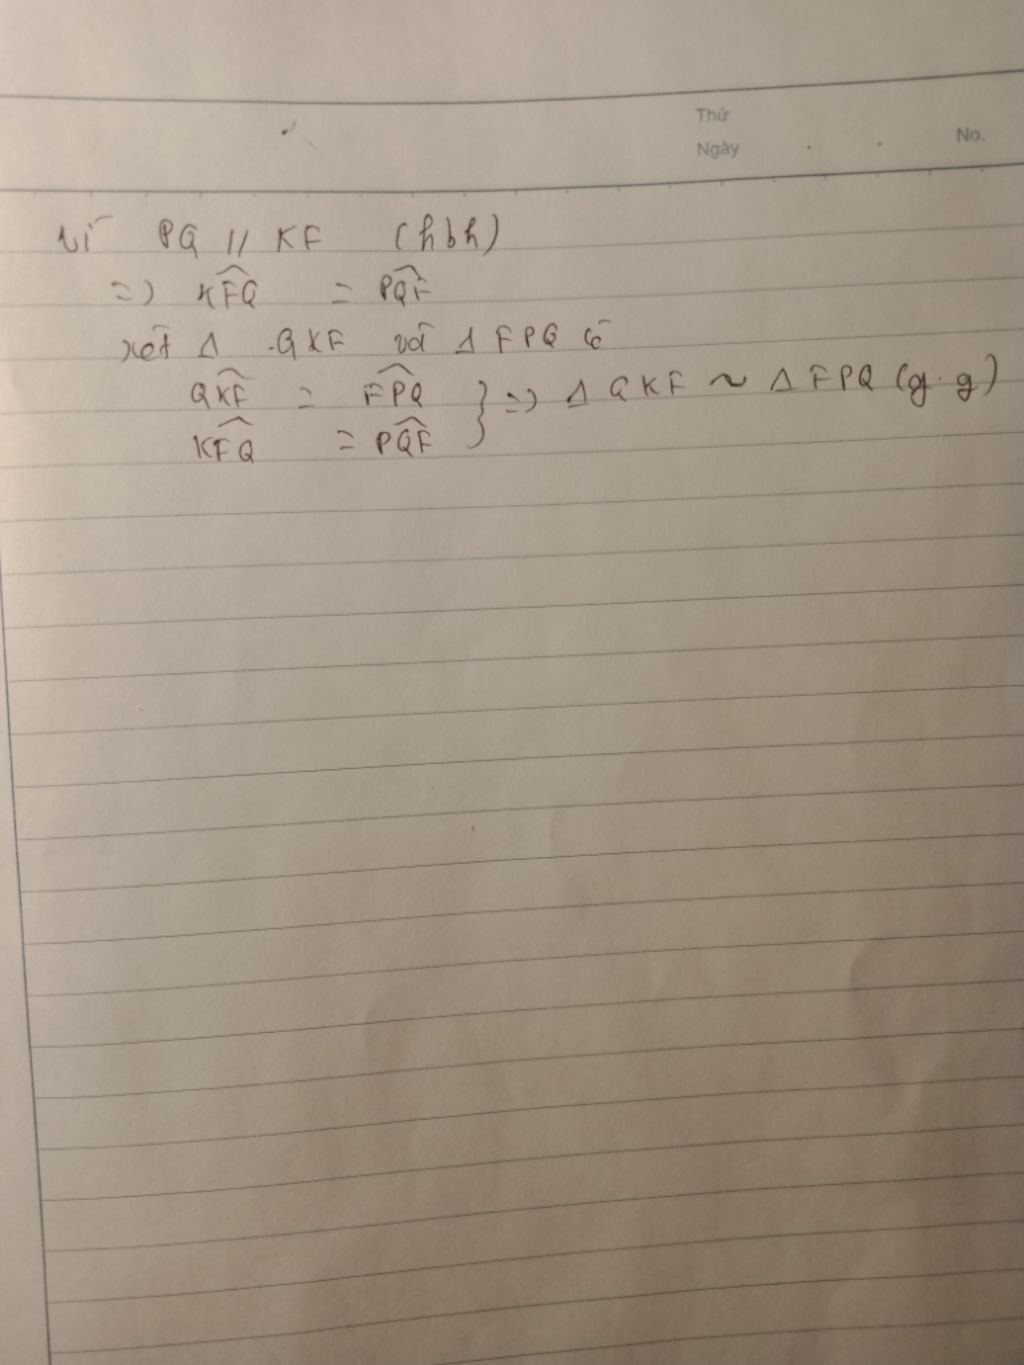 Thứ
Ngày . . No.
Vì PQ // KF (hbh)
=> KFQ = PQF
xét Δ QKF và Δ FPQ có
QKF = FPQ } => Δ QKF ~ Δ FPQ (g.g)
KFQ = PQF